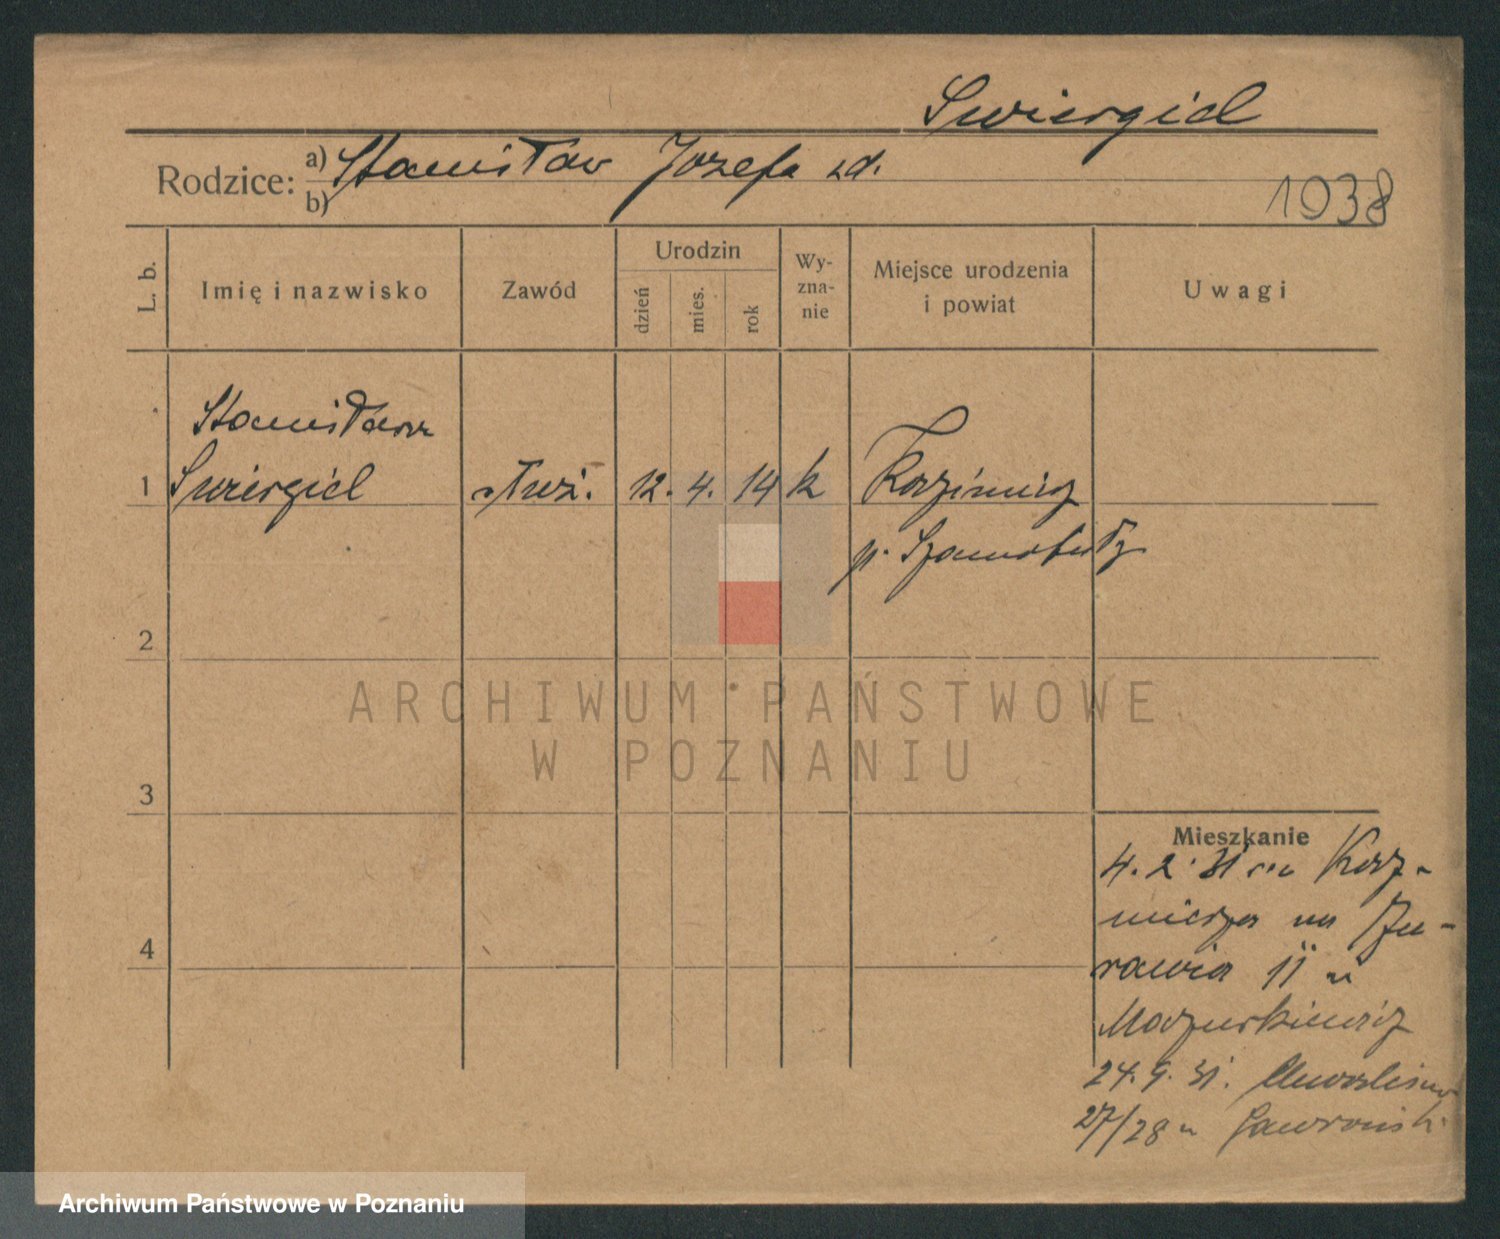 Swiergiel
Rodzice: a) Stanisław Jozefa zd.
b)
1938
L. b.
Imię i nazwisko
Zawód
Urodzin
dzień
mies.
rok
Wy-
zna-
nie
Miejsce urodzenia
i powiat
Uwagi
Stanisława
1 Swiergiel służ. 12. 4. 14 k Kazimierz
p. Szamotuły
2
3
4
Mieszkanie
4. 2. 31 Kaz-
mierza na Żu-
rawia 11 u
Mazurkiewicz
24. 9. 31.
27/28 u Gawroński
ARCHIWUM PAŃSTWOWE
W POZNANIU
Archiwum Państwowe w Poznaniu